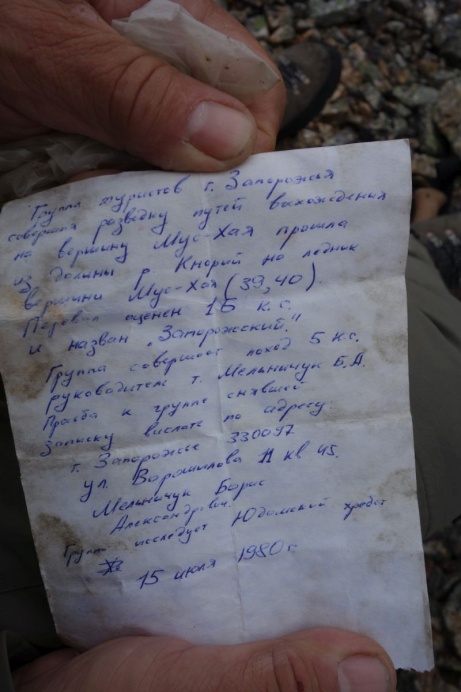 Группа туристов г. Запорожья
совершая разведку путей восхождения
на вершину Мус-Хая прошла
из долины р. Кнорий на ледник
вершины Мус-Хая (39,40)
Перевал оценен 1Б к.с.
и назван „Запорожский."
Группа совершает поход 5 к.с.
руководитель т. Мельничук Б.А.
Просьба к группе снявшей
записку выслать по адресу:
г. Запорожье 330097
ул. Ворошилова кв 45.
Мельничук Борис
Александрович.
Группа исследует Юдомский хребет
15 июля 1980г.